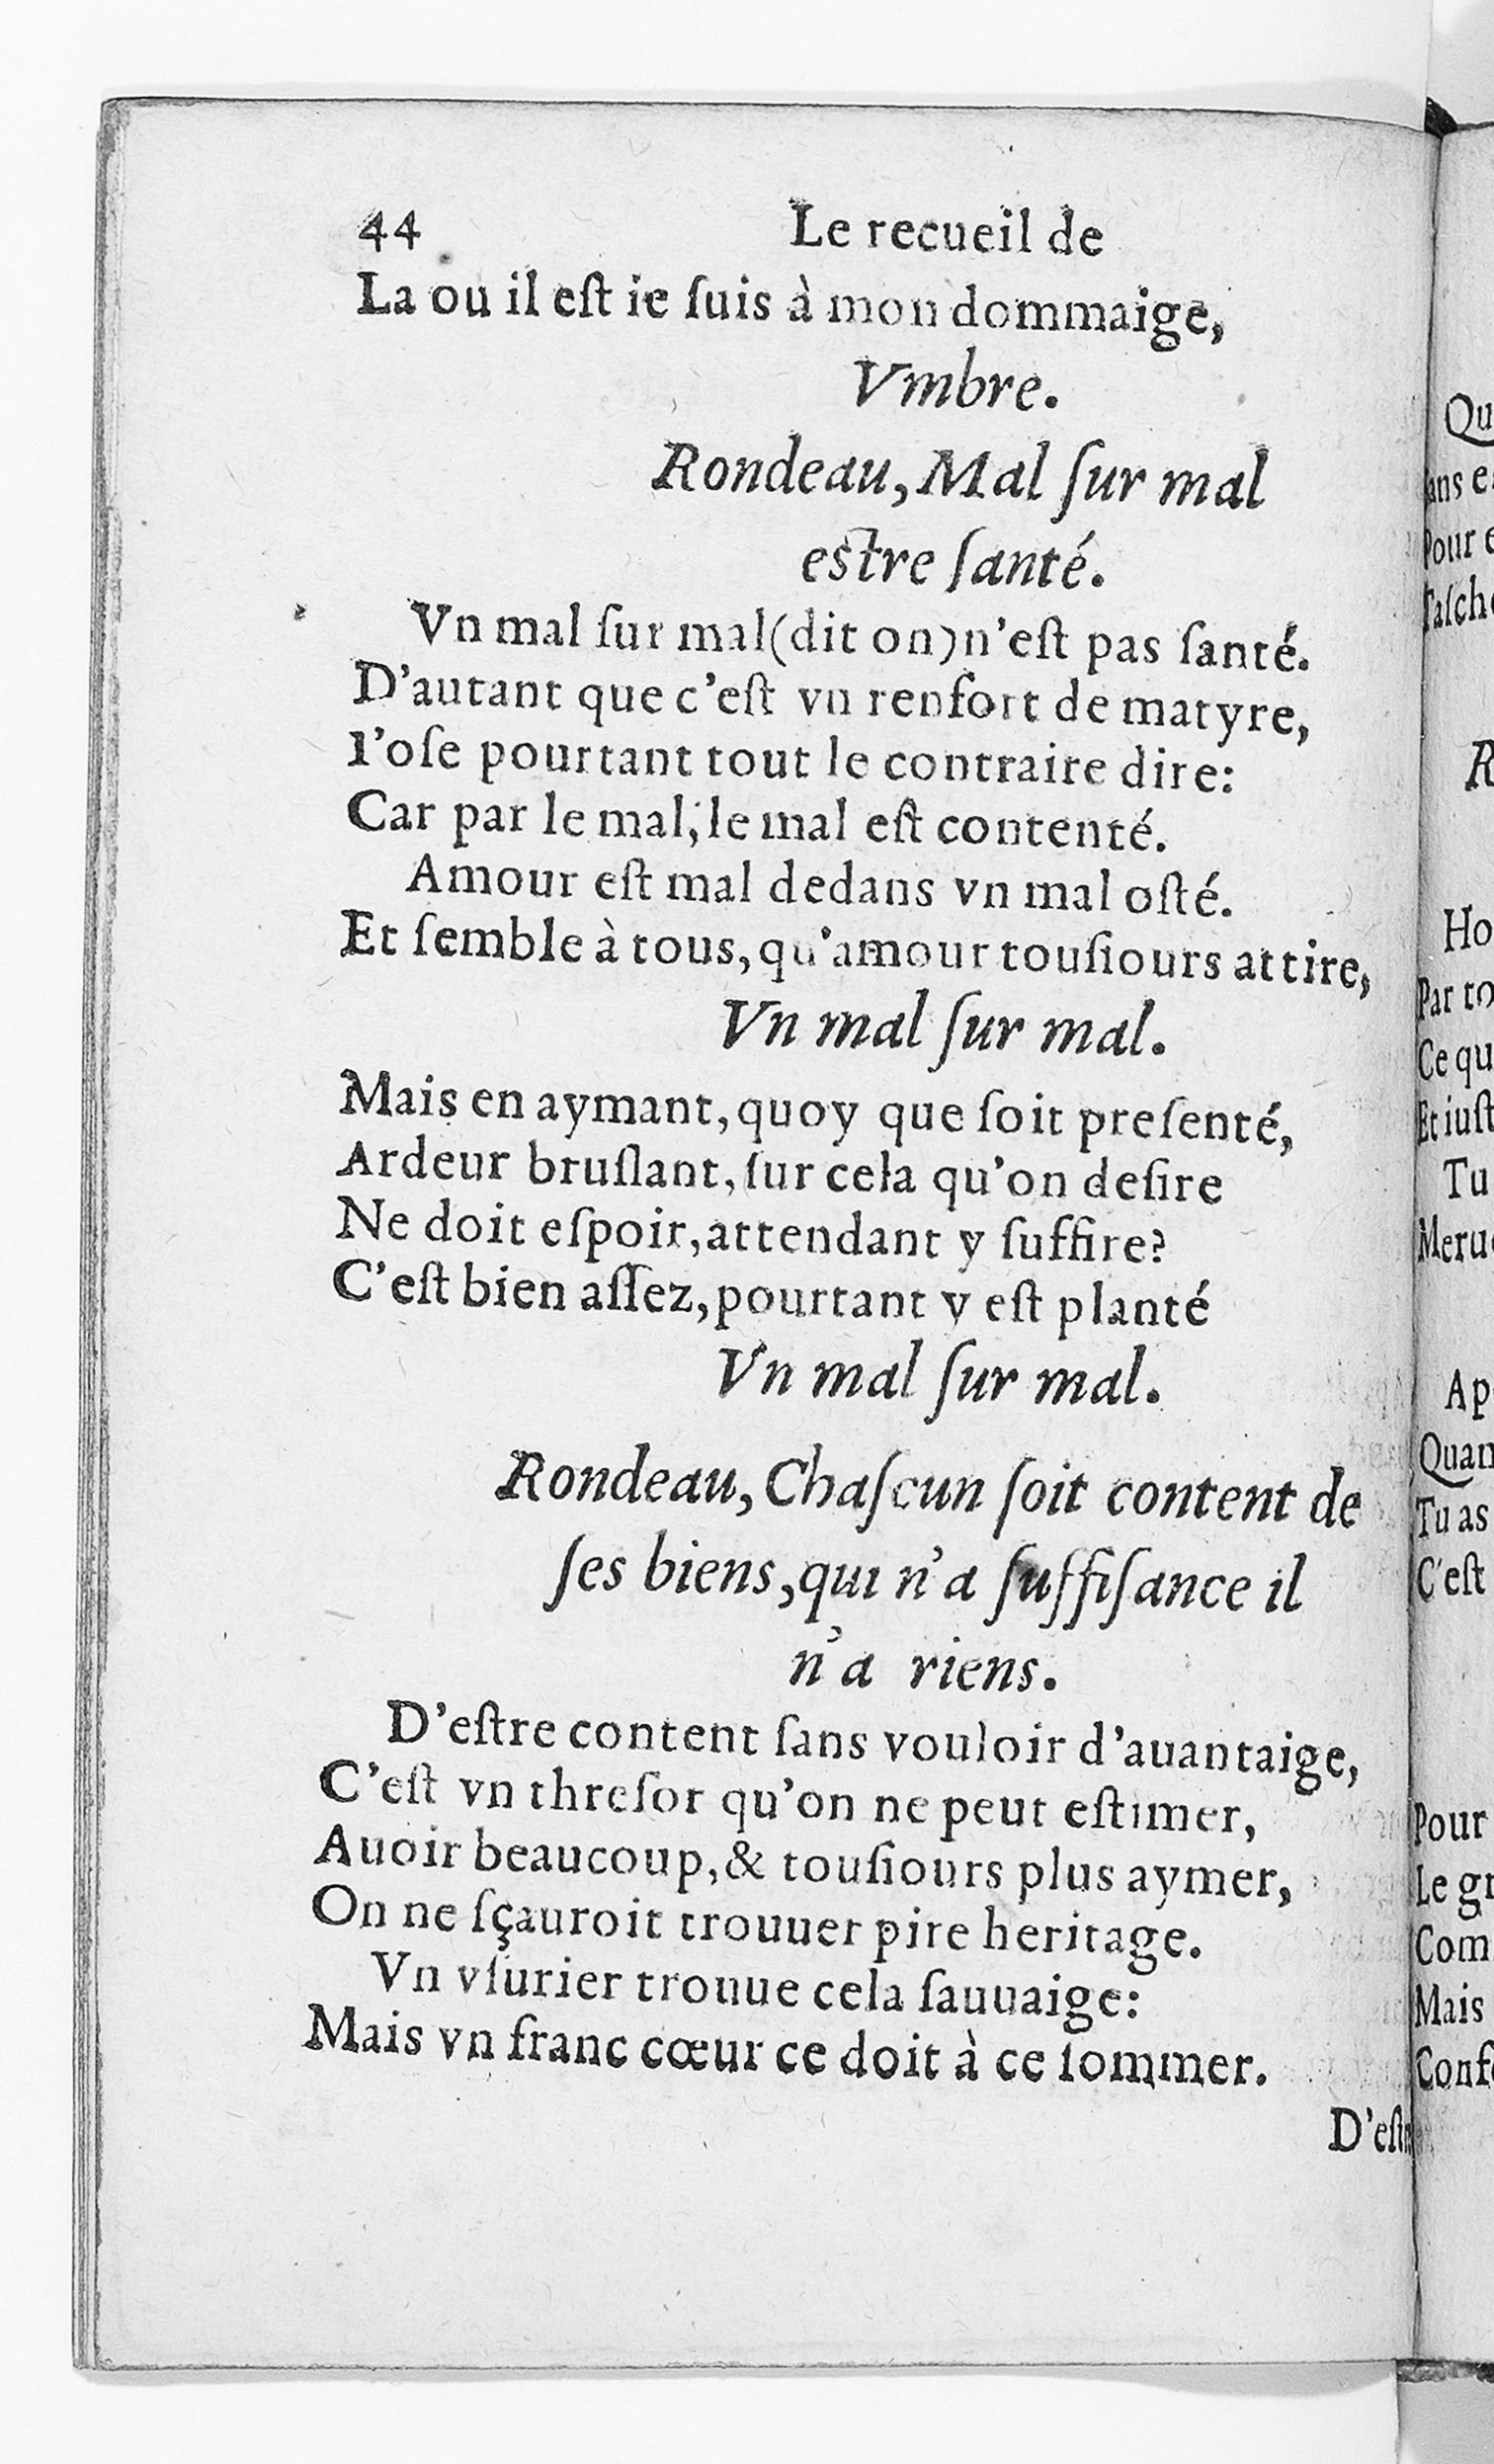 44 Le recueil de
La ou il eſt ie ſuis à mon dommaige,
Vmbre.
Rondeau, Mal ſur mal
eſtre ſanté.
Vn mal ſur mal (dit on) n'eſt pas ſanté.
D'autant que c'eſt vn renfort de matyre,
I'oſe pourtant tout le contraire dire:
Car par le mal, le mal eſt contenté.
Amour eſt mal dedans vn mal oſté.
Et ſemble à tous, qu'amour touſiours attire,
Vn mal ſur mal.
Mais en aymant, quoy que ſoit preſenté,
Ardeur bruſlant, ſur cela qu'on deſire
Ne doit eſpoir, attendant y ſuffire?
C'eſt bien aſſez, pourtant y eſt planté
Vn mal ſur mal.
Rondeau, Chaſcun ſoit content de
ſes biens, qui n'a ſuffiſance il
n'a riens.
D'eſtre content ſans vouloir d'auantaige,
C'eſt vn threſor qu'on ne peut eſtimer,
Auoir beaucoup, & touſiours plus aymer,
On ne ſçauroit trouuer pire heritage.
Vn vſurier trouue cela ſauuaige:
Mais vn franc cœur ce doit à ce ſommer.
D'eſtr
Qu
Pour
R
Ho
Par to
Ce qu
Et iuſt
Tu
Meru
Ap
Quan
Tu as
C'eſt
Pour
Le gr
Com
Mais
Conf